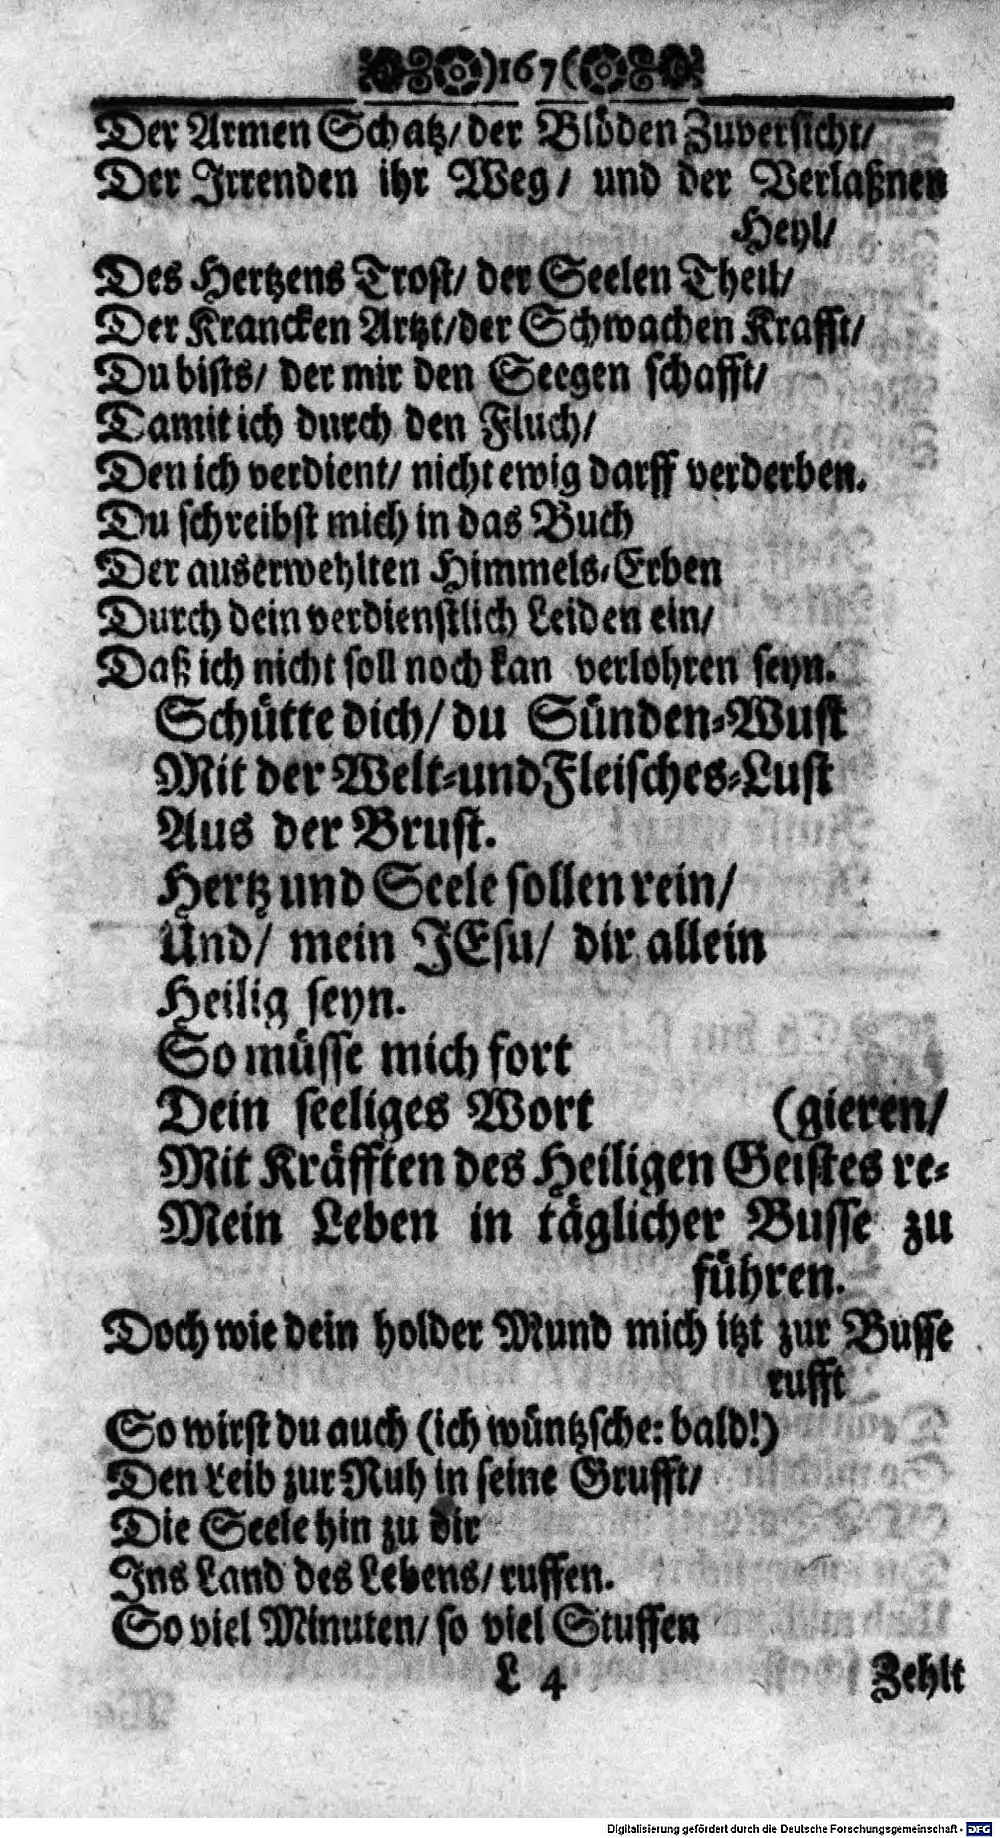 )167(
Der Armen Schatz/ der Blöden Zuversicht/
Der Irrenden ihr Weg/ und der Verlaßnen
Heyl/
Des Hertzens Trost/ der Seelen Theil/
Der Krancken Artzt/der Schwachen Krafft/
Du bists/ der mir den Seegen schafft/
Damit ich durch den Fluch/
Den ich verdient/ nicht ewig darff verderben.
Du schreibst mich in das Buch
Der auserwehlten Himmels-Erben
Durch dein verdienstlich Leiden ein/
Daß ich nicht soll noch kan verlohren seyn.
Schütte dich/ du Sünden-Wust
Mit der Welt-und Fleisches-Lust
Aus der Brust.
Hertz und Seele sollen rein/
Und/ mein JEsu/ dir allein
Heilig seyn.
So müsse mich fort
Dein seeliges Wort (gieren/
Mit Kräfften des Heiligen Geistes re-
Mein Leben in täglicher Busse zu
führen.
Doch wie dein holder Mund mich itzt zur Busse
rufft
So wirst du auch (ich wüntzsche: bald!)
Den Leib zur Ruh in seine Grufft/
Die Seele hin zu dir
Ins Land des Lebens/ ruffen.
So viel Minuten/ so viel Stuffen
L 4 Zehlt
Digitalisierung gefördert durch die Deutsche Forschungsgemeinschaft - DFG